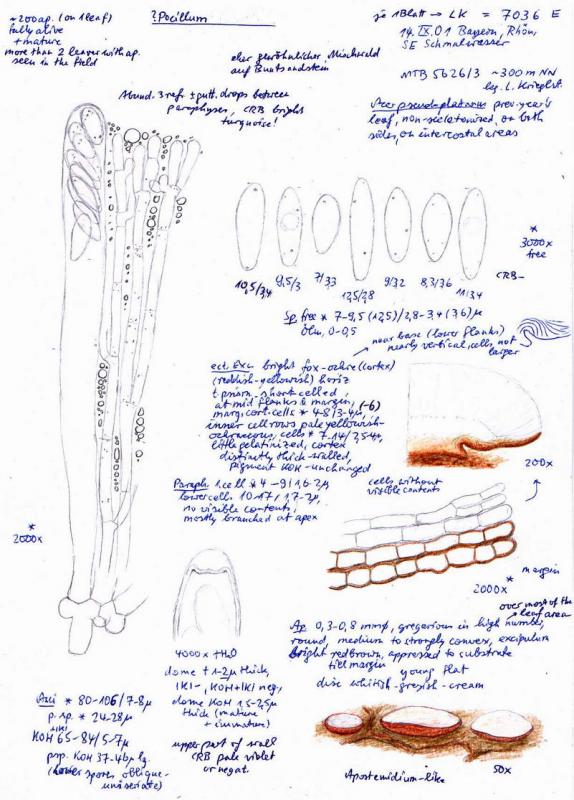 ~200 ap. (on 1 leaf)
fully alive
+ mature
more than 2 leaves with ap.
seen in the field
? Pocillum
je 1 Blatt → LK = 7036 E
14.IX.01 Bayern, Rhön,
SE Schmalwasser
eher gewöhnlicher Mischwald
auf Buntsandstein
MTB 5626/3 ~300 m NN
leg. L. Krieglst.
Acer pseudoplatanus prev. year's
leaf, non-skeletonized, on both
sides, on intercostal areas
Abund. refr. ± gutt. drops between
paraphyses, CRB bright
turquoise!
*
3000x
free
CRB–
10,5/3,4 9,5/3 7/3,3 12,5/2,8 9/3,2 8,3/3,6 11/3,4
Sp free * 7-9,5 (12,5)/2,8-3,4 (3,6) µ
Öltr. 0-0,5
near base (lower flanks)
nearly vertical, cells not
larger
ect. Exc. bright fox-ochre (cortex)
(reddish-yellowish) horiz
t. prism., short-celled,
at mid flanks & margin,
marg. cort. cells * 4-8/3-4µ, (-6)
inner cell rows pale yellowish-
ochraceous, cells * 7-14/2,5-4µ,
little gelatinized, cortex
distinctly thick-walled,
pigment KOH-unchanged
200x
Paraph. 1. cell * 4-9/1,6-2µ
lower cells 10-17/1,7-2µ,
no visible contents,
mostly branched at apex
cells without
visible contents
*
2000x
margin
2000x *
over most of the
leaf area
4000x † H2O
dome † 1-2µ thick,
IKI–, KOH+IKI neg,
dome KOH 1,5-2,5µ
thick (mature
+ immature)
upper part of wall
CRB pale violet
or negat.
Ap 0,3-0,8 mmø, gregarious in high number,
round, medium to strongly convex, excipulum
bright redbrown, appressed to substrate
till margin
young flat
disc whitish-greyish-cream
Asci * 80-106/7-8µ
p. sp. * 24-28µ
KOH 65-84/5-7µ
psp. KOH 37-46µ lg.
(lower spores oblique-
uniseriate)
Apostemidium-like
50x